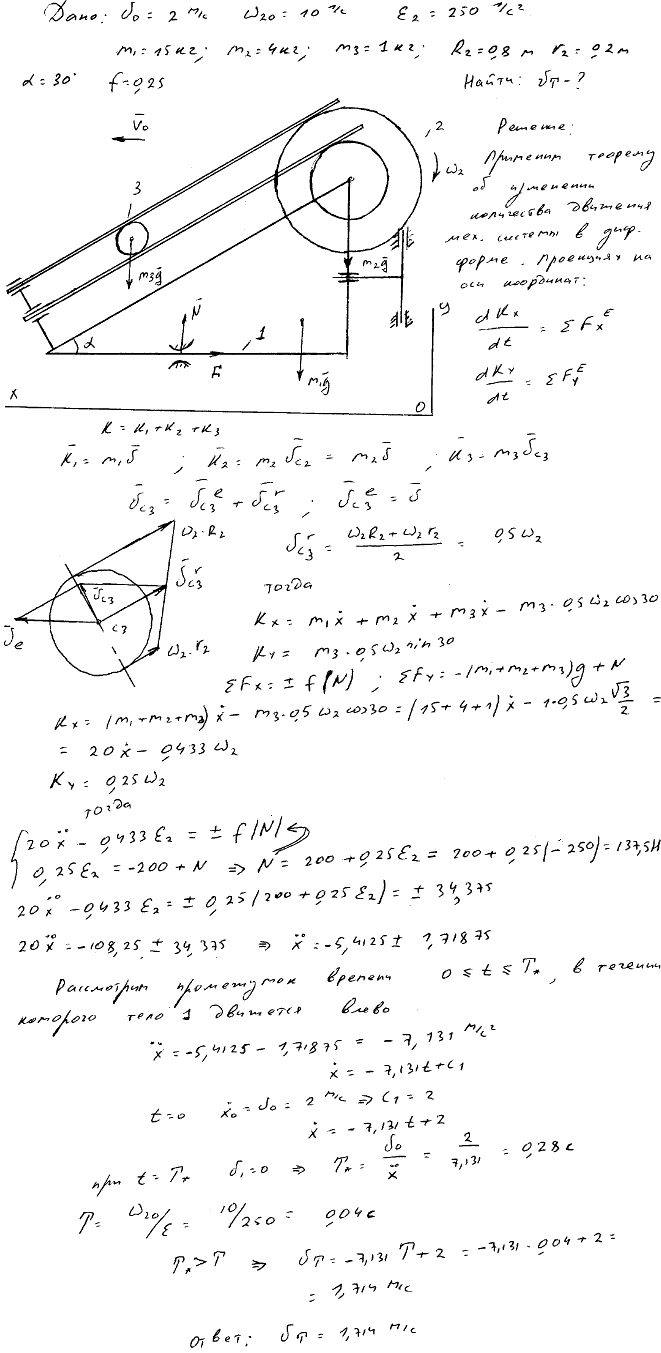 Дано: v₀ = 2 м/с   ω₂₀ = 10 1/с   ε₂ = 250 1/с²
m₁ = 15 кг; m₂ = 4 кг; m₃ = 1 кг; R₂ = 0,8 м r₂ = 0,2 м
α = 30° f = 0,25   Найти: vT - ?
V̄₀
2
Решение:
ω₂
Применим теорему
об изменении
количества движения
мех. системы в диф.
форме. Проекциях на
оси координат:
3
m₃ḡ
m₂ḡ
N̄
α
1
F
m₁ḡ
y
x
0
dKx/dt = ΣFxᴱ
dKy/dt = ΣFyᴱ
K = K₁ + K₂ + K₃
K̄₁ = m₁v̄ ; K̄₂ = m₂v̄c₂ = m₂v̄ ; K̄₃ = m₃v̄c₃
v̄c₃ = v̄c₃ᵉ + v̄c₃ʳ ; v̄c₃ᵉ = v̄
ω₂·R₂
v̄c₃ʳ
v̄c₃
c₃
v̄e
ω₂·r₂
vc₃ʳ = (ω₂R₂ + ω₂r₂)/2 = 0,5ω₂
тогда
Kx = m₁ẋ + m₂ẋ + m₃ẋ - m₃·0,5ω₂cos30
Ky = m₃·0,5ω₂sin30
ΣFx = ± f|N| ; ΣFy = -(m₁+m₂+m₃)g + N
Kx = (m₁+m₂+m₃)ẋ - m₃·0,5ω₂cos30 = (15+4+1)ẋ - 1·0,5ω₂ √3/2 =
= 20ẋ - 0,433ω₂
Ky = 0,25ω₂
тогда
20ẍ - 0,433ε₂ = ± f|N|
0,25ε₂ = -200 + N ⇒ N = 200 + 0,25ε₂ = 200 + 0,25(-250) = 137,5Н
20ẍ - 0,433ε₂ = ± 0,25(200 + 0,25ε₂) = ± 34,375
20ẍ = -108,25 ± 34,375 ⇒ ẍ = -5,4125 ± 1,71875
Рассмотрим промежуток времени 0 ≤ t ≤ T*, в течении
которого тело 1 движется влево
ẍ = -5,4125 - 1,71875 = -7,131 м/с²
ẋ = -7,131t + c₁
t = 0 ẋ₀ = v₀ = 2 м/с ⇒ c₁ = 2
ẋ = -7,131t + 2
при t = T* v₁ = 0 ⇒ T* = v₀/ẍ = 2/7,131 = 0,28 с
T = ω₂₀/ε = 10/250 = 0,04 с
T* > T ⇒ vT = -7,131 T + 2 = -7,131·0,04 + 2 =
= 1,714 м/с
ответ: vT = 1,714 м/с